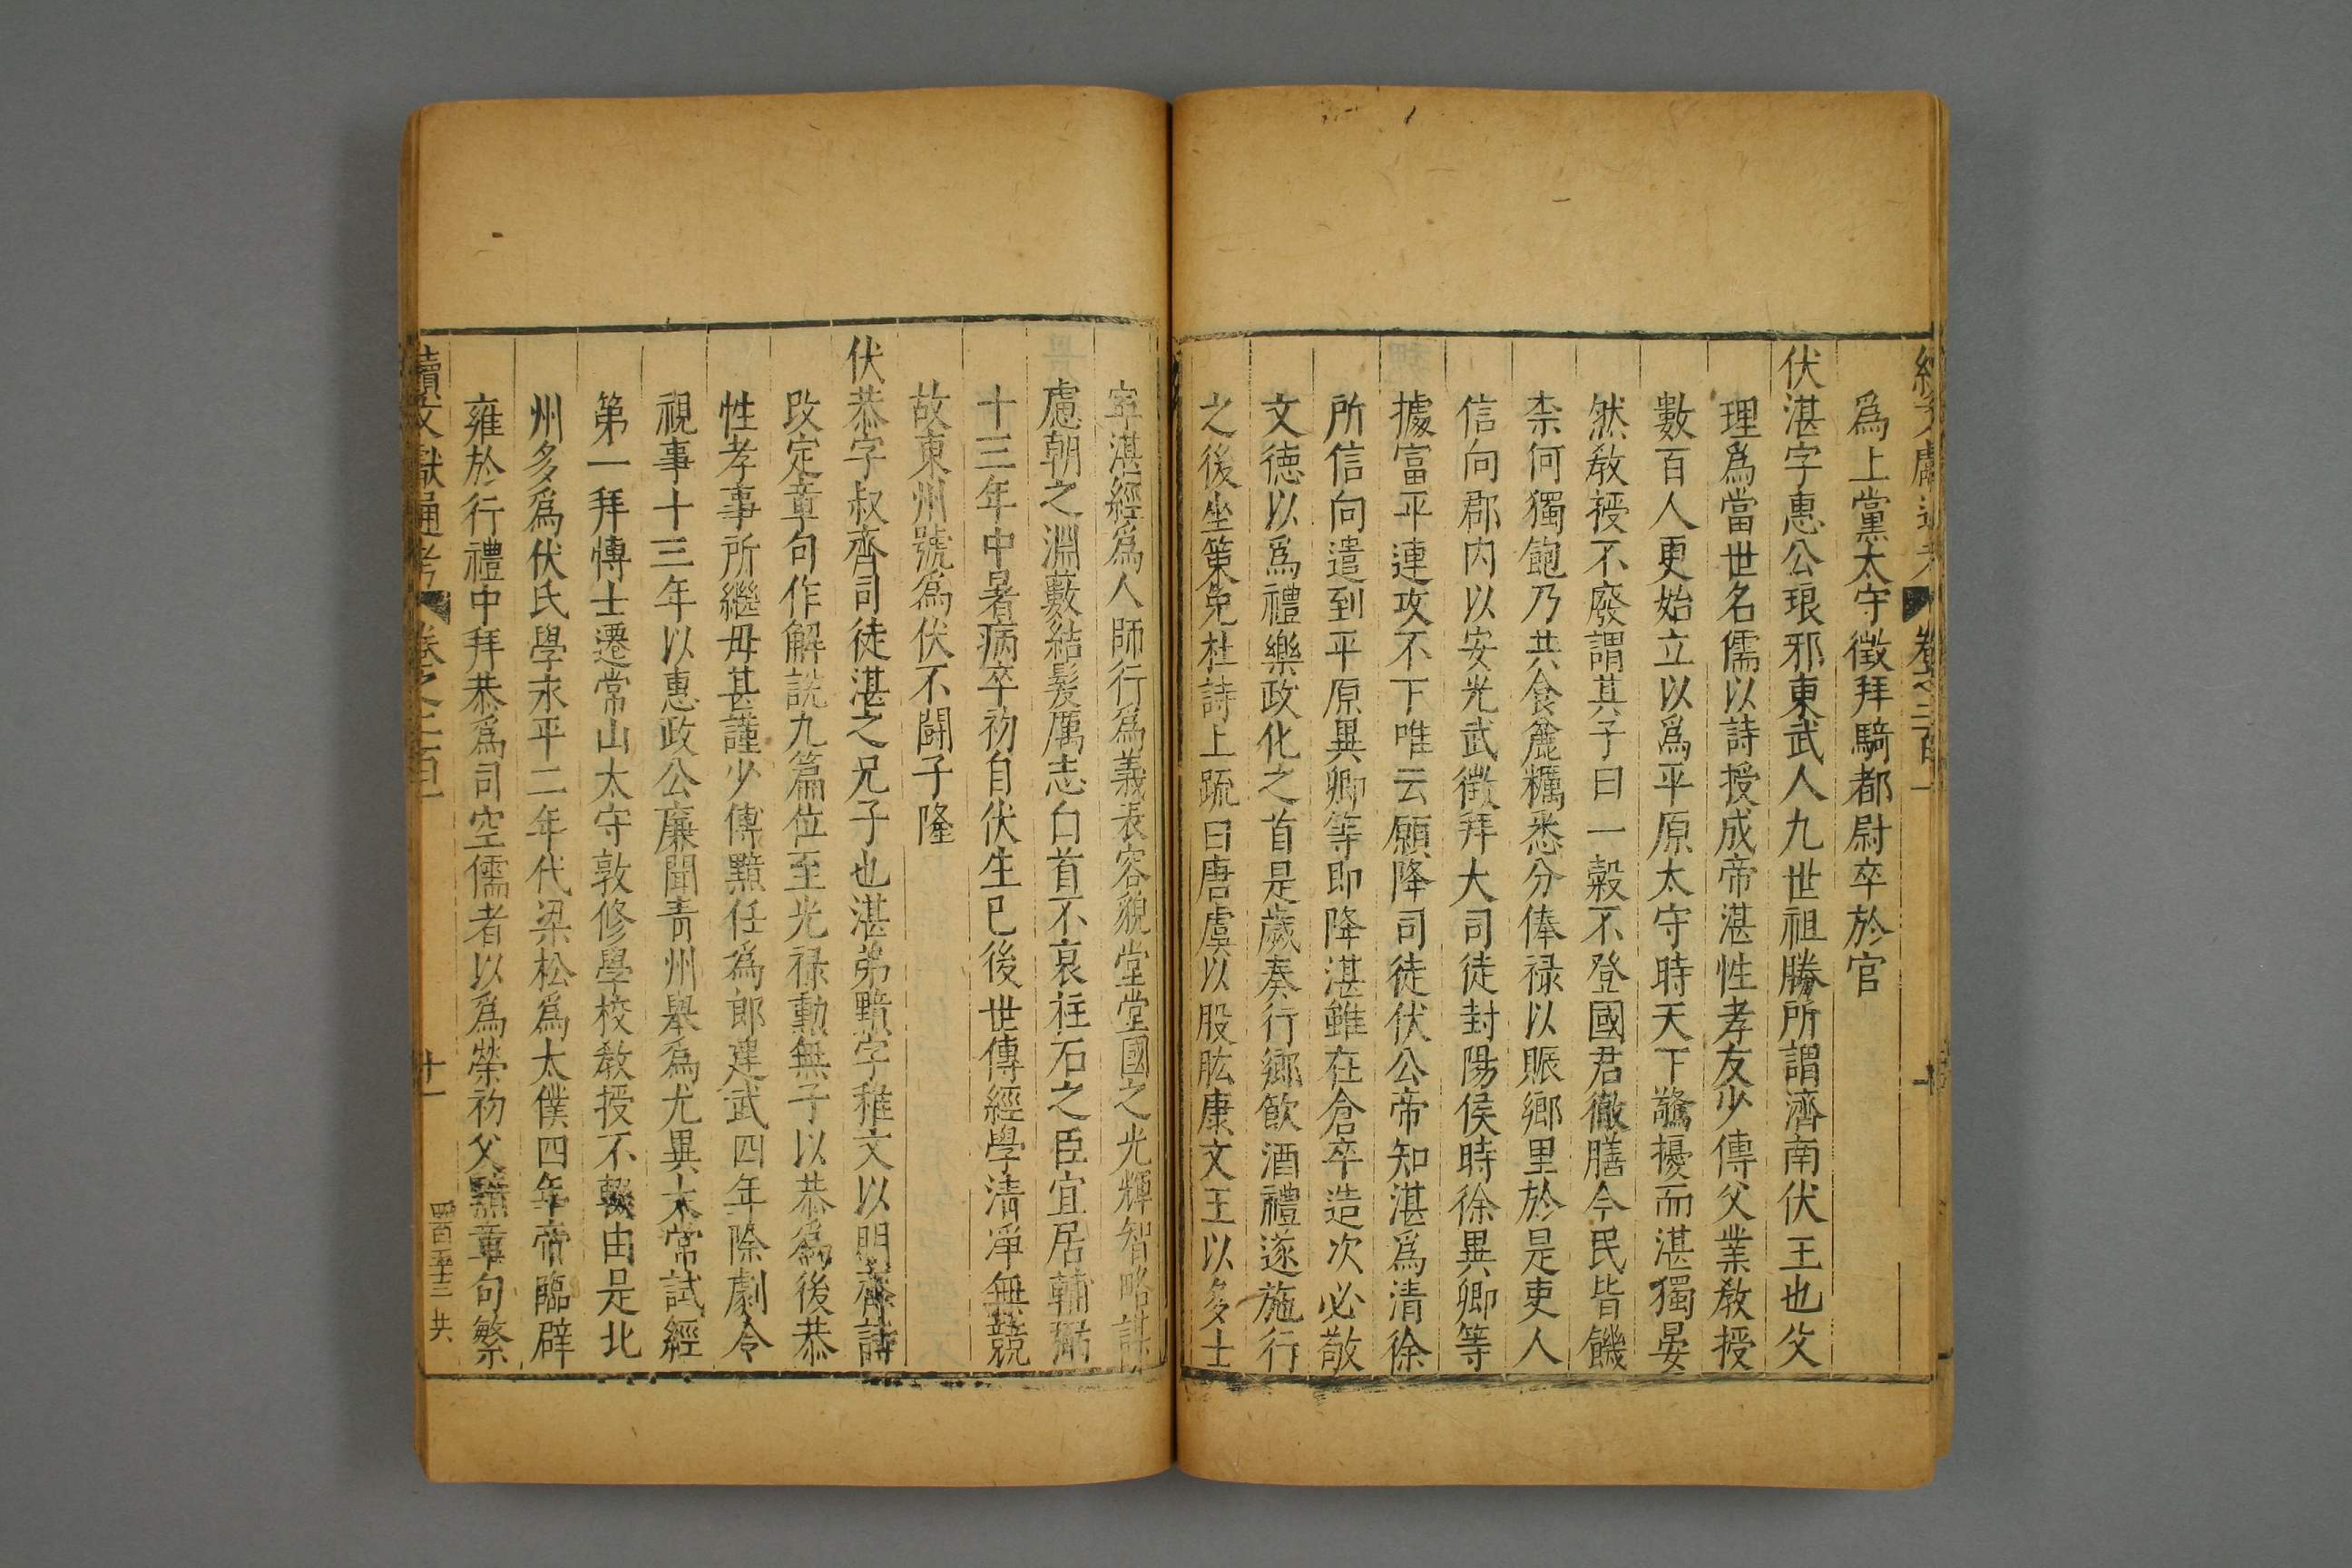 爲上黨太守徵拜騎都尉卒於官
伏湛字惠公琅邪東武人九世祖勝所謂濟南伏王也父
理爲當世名儒以詩授成帝湛性孝友少傳父業教授
數百人更始立以爲平原太守時天下驚擾而湛獨晏
然教授不廢謂其子曰一穀不登國君徹膳今民皆饑
柰何獨飽乃共食麄糲悉分俸禄以賑鄉里於是吏人
信向郡内以安光武徵拜大司徒封陽侯時徐異卿等
據富平連攻不下唯云願降司徒伏公帝知湛爲清徐
所信向遣到平原異卿等即降湛雖在倉卒造次必敬
文德以爲禮樂政化之首是歲奏行鄉飲酒禮遂施行
之後坐策免杜詩上疏曰唐虞以股肱康文王以多士
寧湛經爲人師行爲義表容貌堂堂國之光輝智略謀
慮朝之淵藪結髮厲志白首不衰柱石之臣宜居輔弼
十三年中暑病卒初自伏生已後世傳經學清淨無競
故東州號爲伏不鬭子隆
伏恭字叔齊司徒湛之兄子也湛弟黯字稚文以明齊詩
改定章句作解說九篇位至光禄勳無子以恭爲後恭
性孝事所繼母甚謹少傳黯任爲郎建武四年除劇令
視事十三年以惠政公廉聞青州舉爲尤異太常試經
第一拜愽士遷常山太守敦修學校教授不輟由是北
州多爲伏氏學永平二年代梁松爲太僕四年帝臨辟
雍於行禮中拜恭爲司空儒者以爲榮初父黯章句繁
續文獻通考
十一